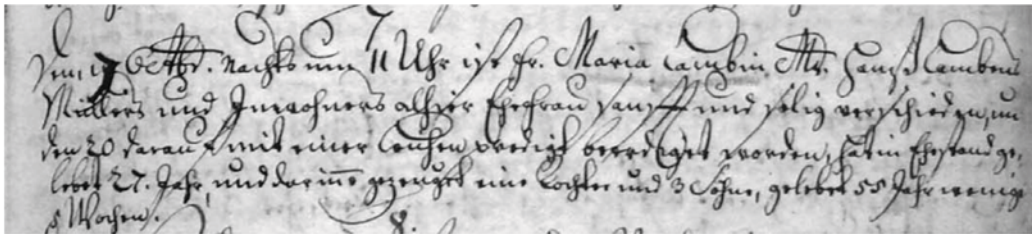 7
Den 17 Octbr. Nachts um 11 Uhr ist Fr. Maria Lambin, Mr. Hanß Lambens
Müllers und Inwohners alhier Ehefrau sanfft und selig verschieden, un
den 20 darauf mit einer Leichenpredigt beerdiget worden, hat im Ehestand ge-
lebet 27. Jahr, und darinne gezeuget eine Tochter und 3 Söhne, gelebet 55 Jahr wenig
5 Wochen.
8.